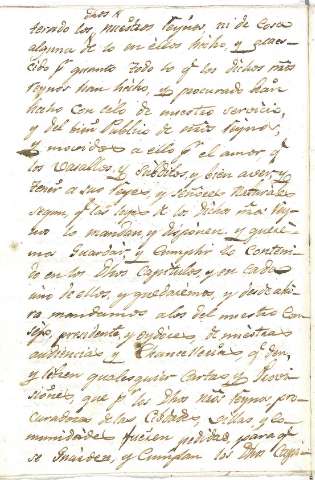 dhos R
terado los, nuestros Reynos, ni de cosa
alguna de lo en ellos hecho, y acaes-
cido pr quanto todo lo qe los dichos nros
Reynos han hecho, y procurado han
hecho con celo de nuestro servicio,
y del bien Publico de nros Reynos,
y movidos a ello pr el amor, qe
los Vasallos, y Subditos, y bien aver, y
tener a sus Reyes, y Señores Naturales
segun, qe las leyes de los dichos nros Rey-
nos lo mandan, y disponen, y quere-
mos guardar, y Cumplir lo conteni-
do en los dhos Capitulos, y en cada
uno de ellos, y queremos, y desde aho-
ra mandamos a los del nuestro con-
sejo, presidente, y oydores, de nuestras
audiencias, y Chancelleria qe den,
y libren qualesquier Cartas, y Provi-
siones, que pr los dhos nros Reynos pro-
curadores de las Ciudades, villas, y co-
munidades fueren pedidas, para qe
se Guarden, y Cumplan los dhos Capi-